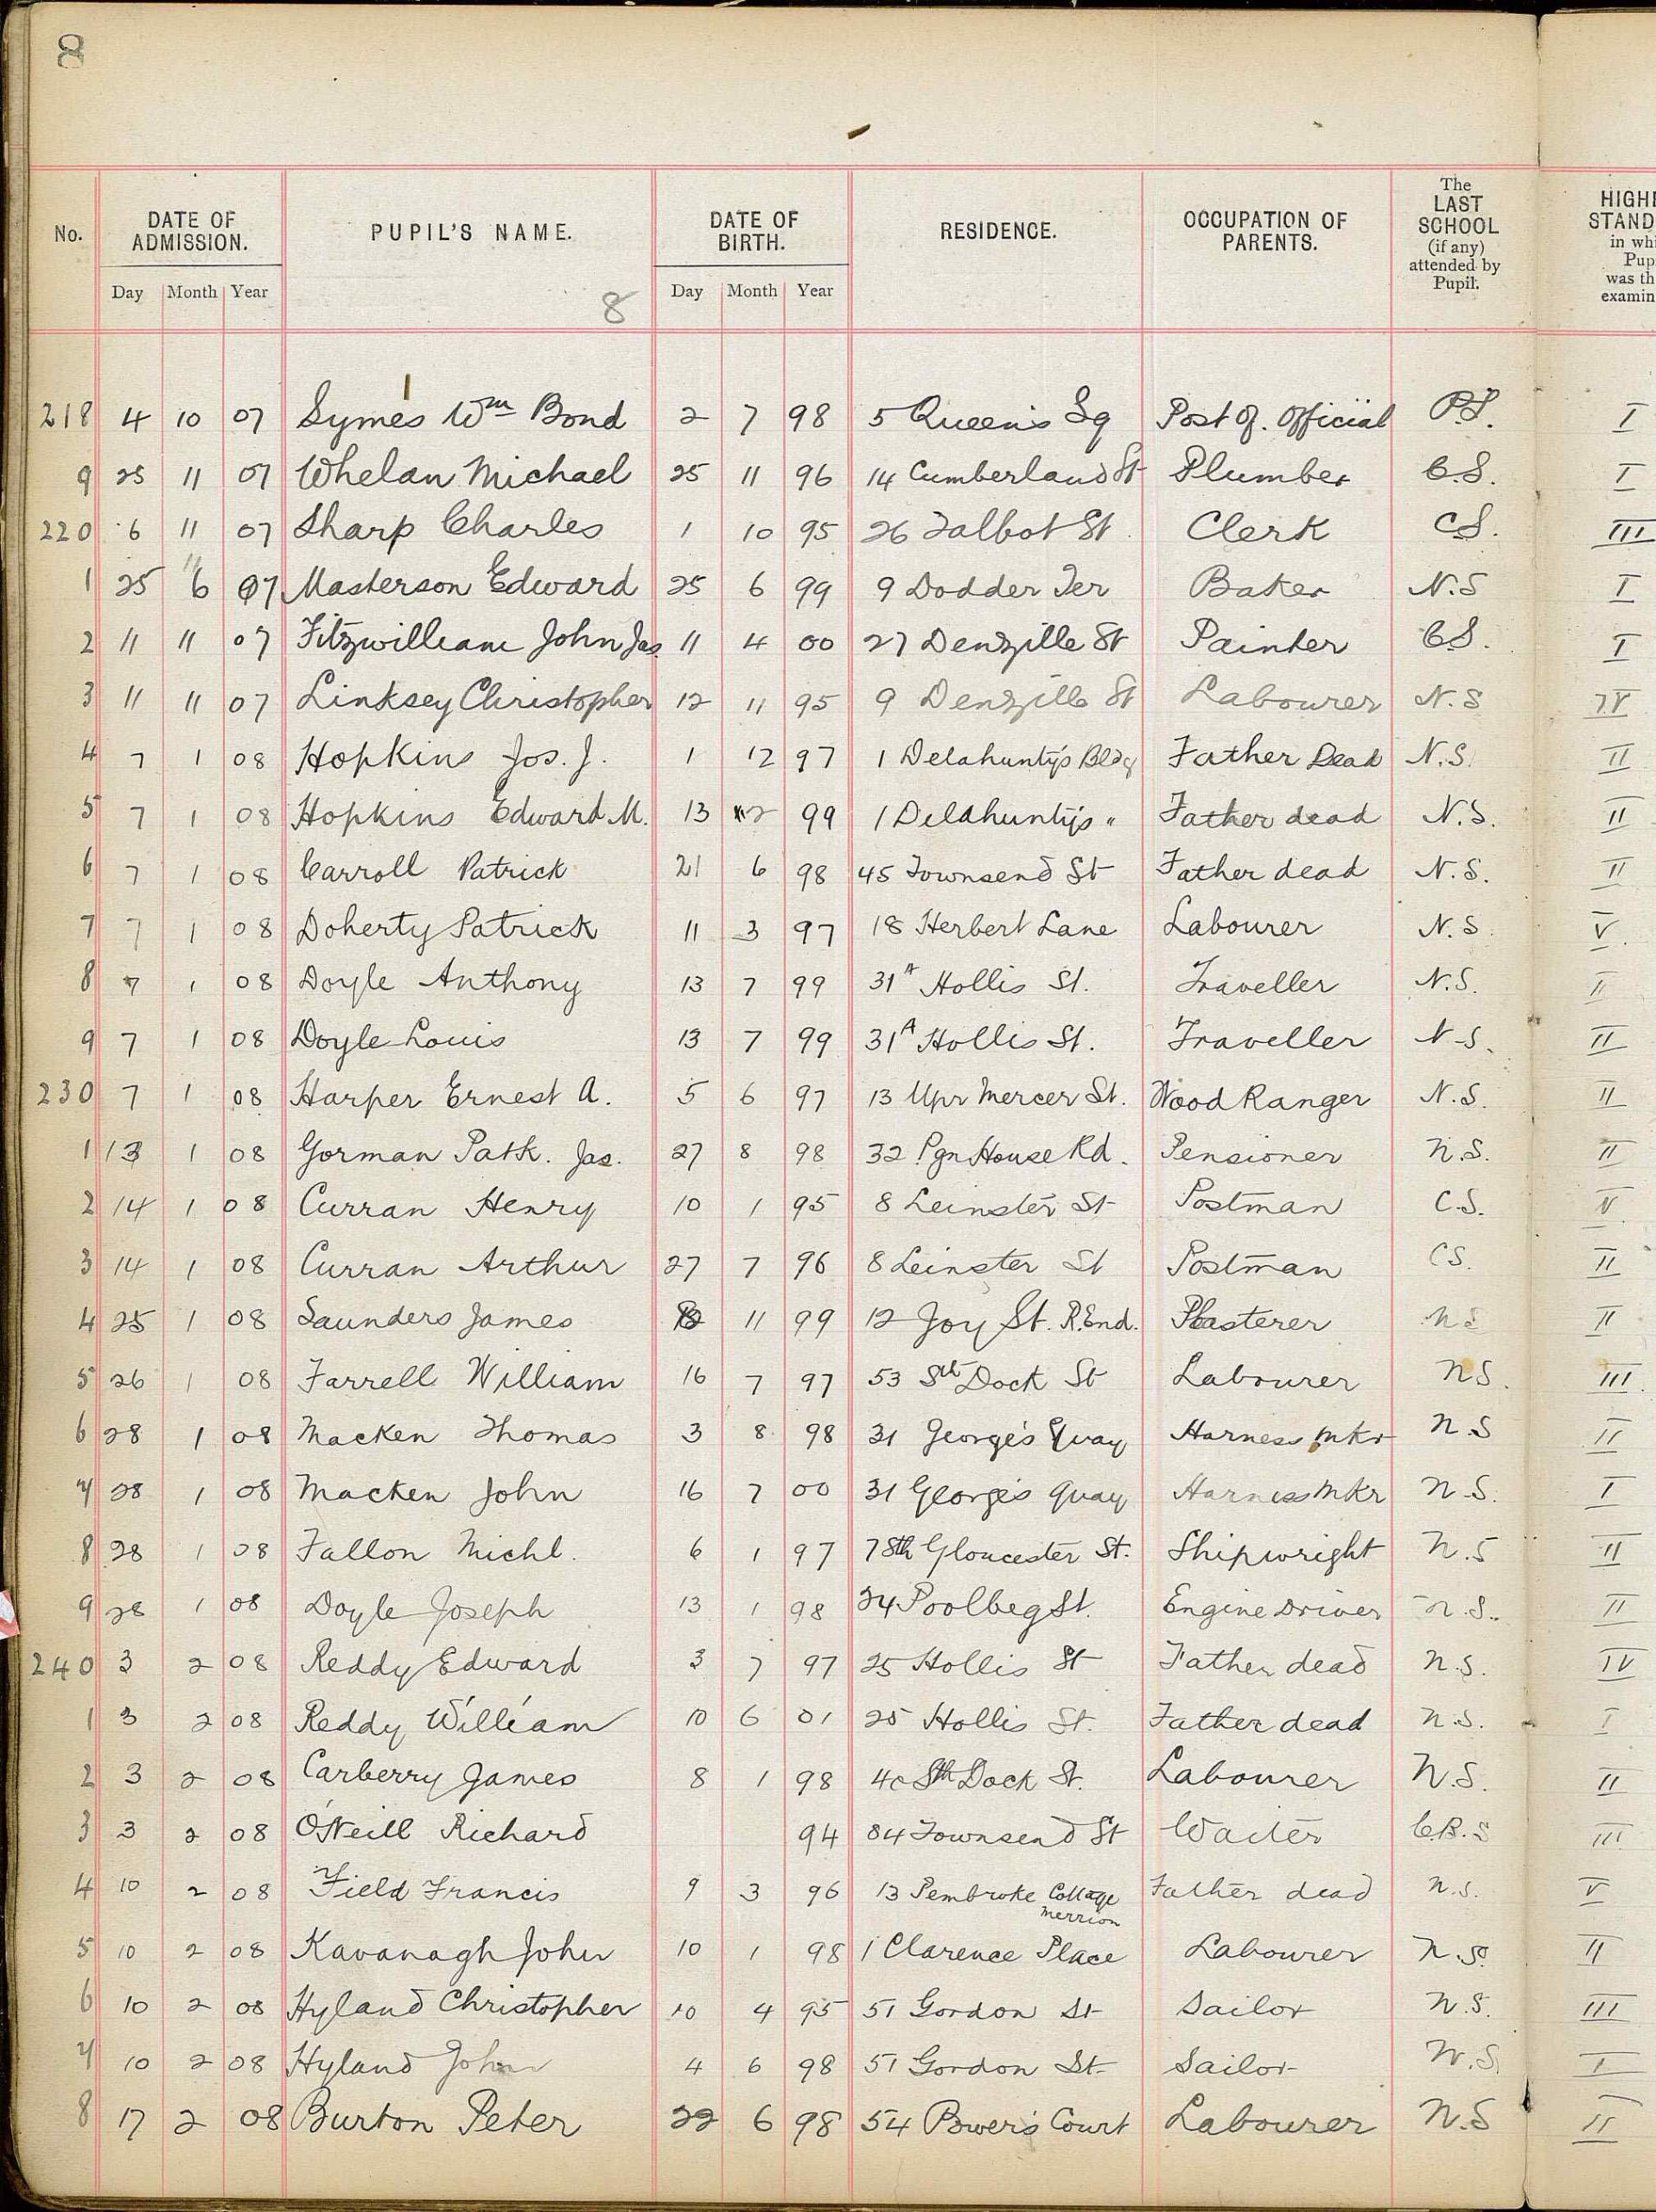 8
No.
DATE OF ADMISSION.
Day Month Year
PUPIL'S NAME.
8
DATE OF BIRTH.
Day Month Year
RESIDENCE.
OCCUPATION OF PARENTS.
The LAST SCHOOL (if any) attended by Pupil.
HIGHE
STAND
in whi
Pup
was th
examin
218 4 10 07 Symes Wm Bond 2 7 98 5 Queen's Sq Post Of. Official P.S. I
9 25 11 07 Whelan Michael 25 11 96 14 Cumberland St Plumber C.S. I
220 6 11 07 Sharp Charles 1 10 95 26 Talbot St Clerk C.S. III
1 25 6 07 Masterson Edward 25 6 99 9 Dodder Ter Baker N.S I
2 11 11 07 Fitzwilliam John Jas. 11 4 00 27 Denzille St Painter C.S. I
3 11 11 07 Linksey Christopher 12 11 95 9 Denzille St Labourer N.S IV
4 7 1 08 Hopkins Jos. J. 1 12 97 1 Delahunty's Bldg Father Dead N.S. II
5 7 1 08 Hopkins Edward M. 13 2 99 1 Delahunty's " Father dead N.S. II
6 7 1 08 Carroll Patrick 21 6 98 45 Townsend St Father dead N.S. II
7 7 1 08 Doherty Patrick 11 3 97 18 Herbert Lane Labourer N.S. V.
8 7 1 08 Doyle Anthony 13 7 99 31A Hollis St. Traveller N.S. II
9 7 1 08 Doyle Louis 13 7 99 31A Hollis St. Traveller N.S. II
230 7 1 08 Harper Ernest A. 5 6 97 13 Upr Mercer St. Wood Ranger N.S. II
1 13 1 08 Gorman Patk. Jas. 27 8 98 32 Pgn House Rd. Pensioner N.S. II
2 14 1 08 Curran Henry 10 1 95 8 Leinster St Postman C.S.
3 14 1 08 Curran Arthur 27 7 96 8 Leinster St Postman C.S. II
4 25 1 08 Saunders James 11 99 12 Joy St. R.End. Plasterer N.S II
5 26 1 08 Farrell William 16 7 97 53 Sth Dock St Labourer N.S. III
6 28 1 08 Macken Thomas 3 8 98 31 George's Quay Harness Mkr N.S II
7 28 1 08 Macken John 16 7 00 31 George's Quay Harness Mkr N.S. I
8 28 1 08 Fallon Michl. 6 1 97 7 Sth Gloucester St. Shipwright N.S II
9 28 1 08 Doyle Joseph 13 1 98 24 Poolbeg St. Engine Driver N.S. II
240 3 2 08 Reddy Edward 3 7 97 25 Hollis St Father dead N.S. IV
1 3 2 08 Reddy William 10 6 01 25 Hollis St. Father dead N.S. I
2 3 2 08 Carberry James 8 1 98 40 Sth Dock St. Labourer N.S. II
3 3 2 08 O'Neill Richard 94 84 Townsend St Waiter C.B.S III
4 10 2 08 Field Francis 9 3 96 13 Pembroke Cottage Merrion Father dead N.S. V
5 10 2 08 Kavanagh John 10 1 98 1 Clarence Place Labourer N.S. II
6 10 2 08 Hyland Christopher 10 4 95 51 Gordon St Sailor N.S. III
7 10 2 08 Hyland John 4 6 98 51 Gordon St Sailor N.S. I
8 17 2 08 Burton Peter 22 6 98 54 Power's Court Labourer N.S II